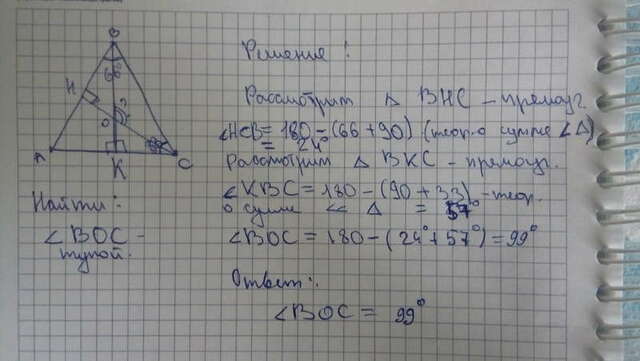 Решение:
B
66
H
O
?
A
K
C
Рассмотрим △ BHC – прямоуг.
∠HCB = 180 – (66 + 90) (теор. о сумме ∠ △)
= 24°
Рассмотрим △ BKC – прямоуг.
∠KBC = 180 – (90 + 33) – теор.
о сумме ∠∠ △ = 57°
∠BOC = 180 – (24° + 57°) = 99°
Ответ:
∠BOC = 99°
Найти:
∠BOC –
тупой.